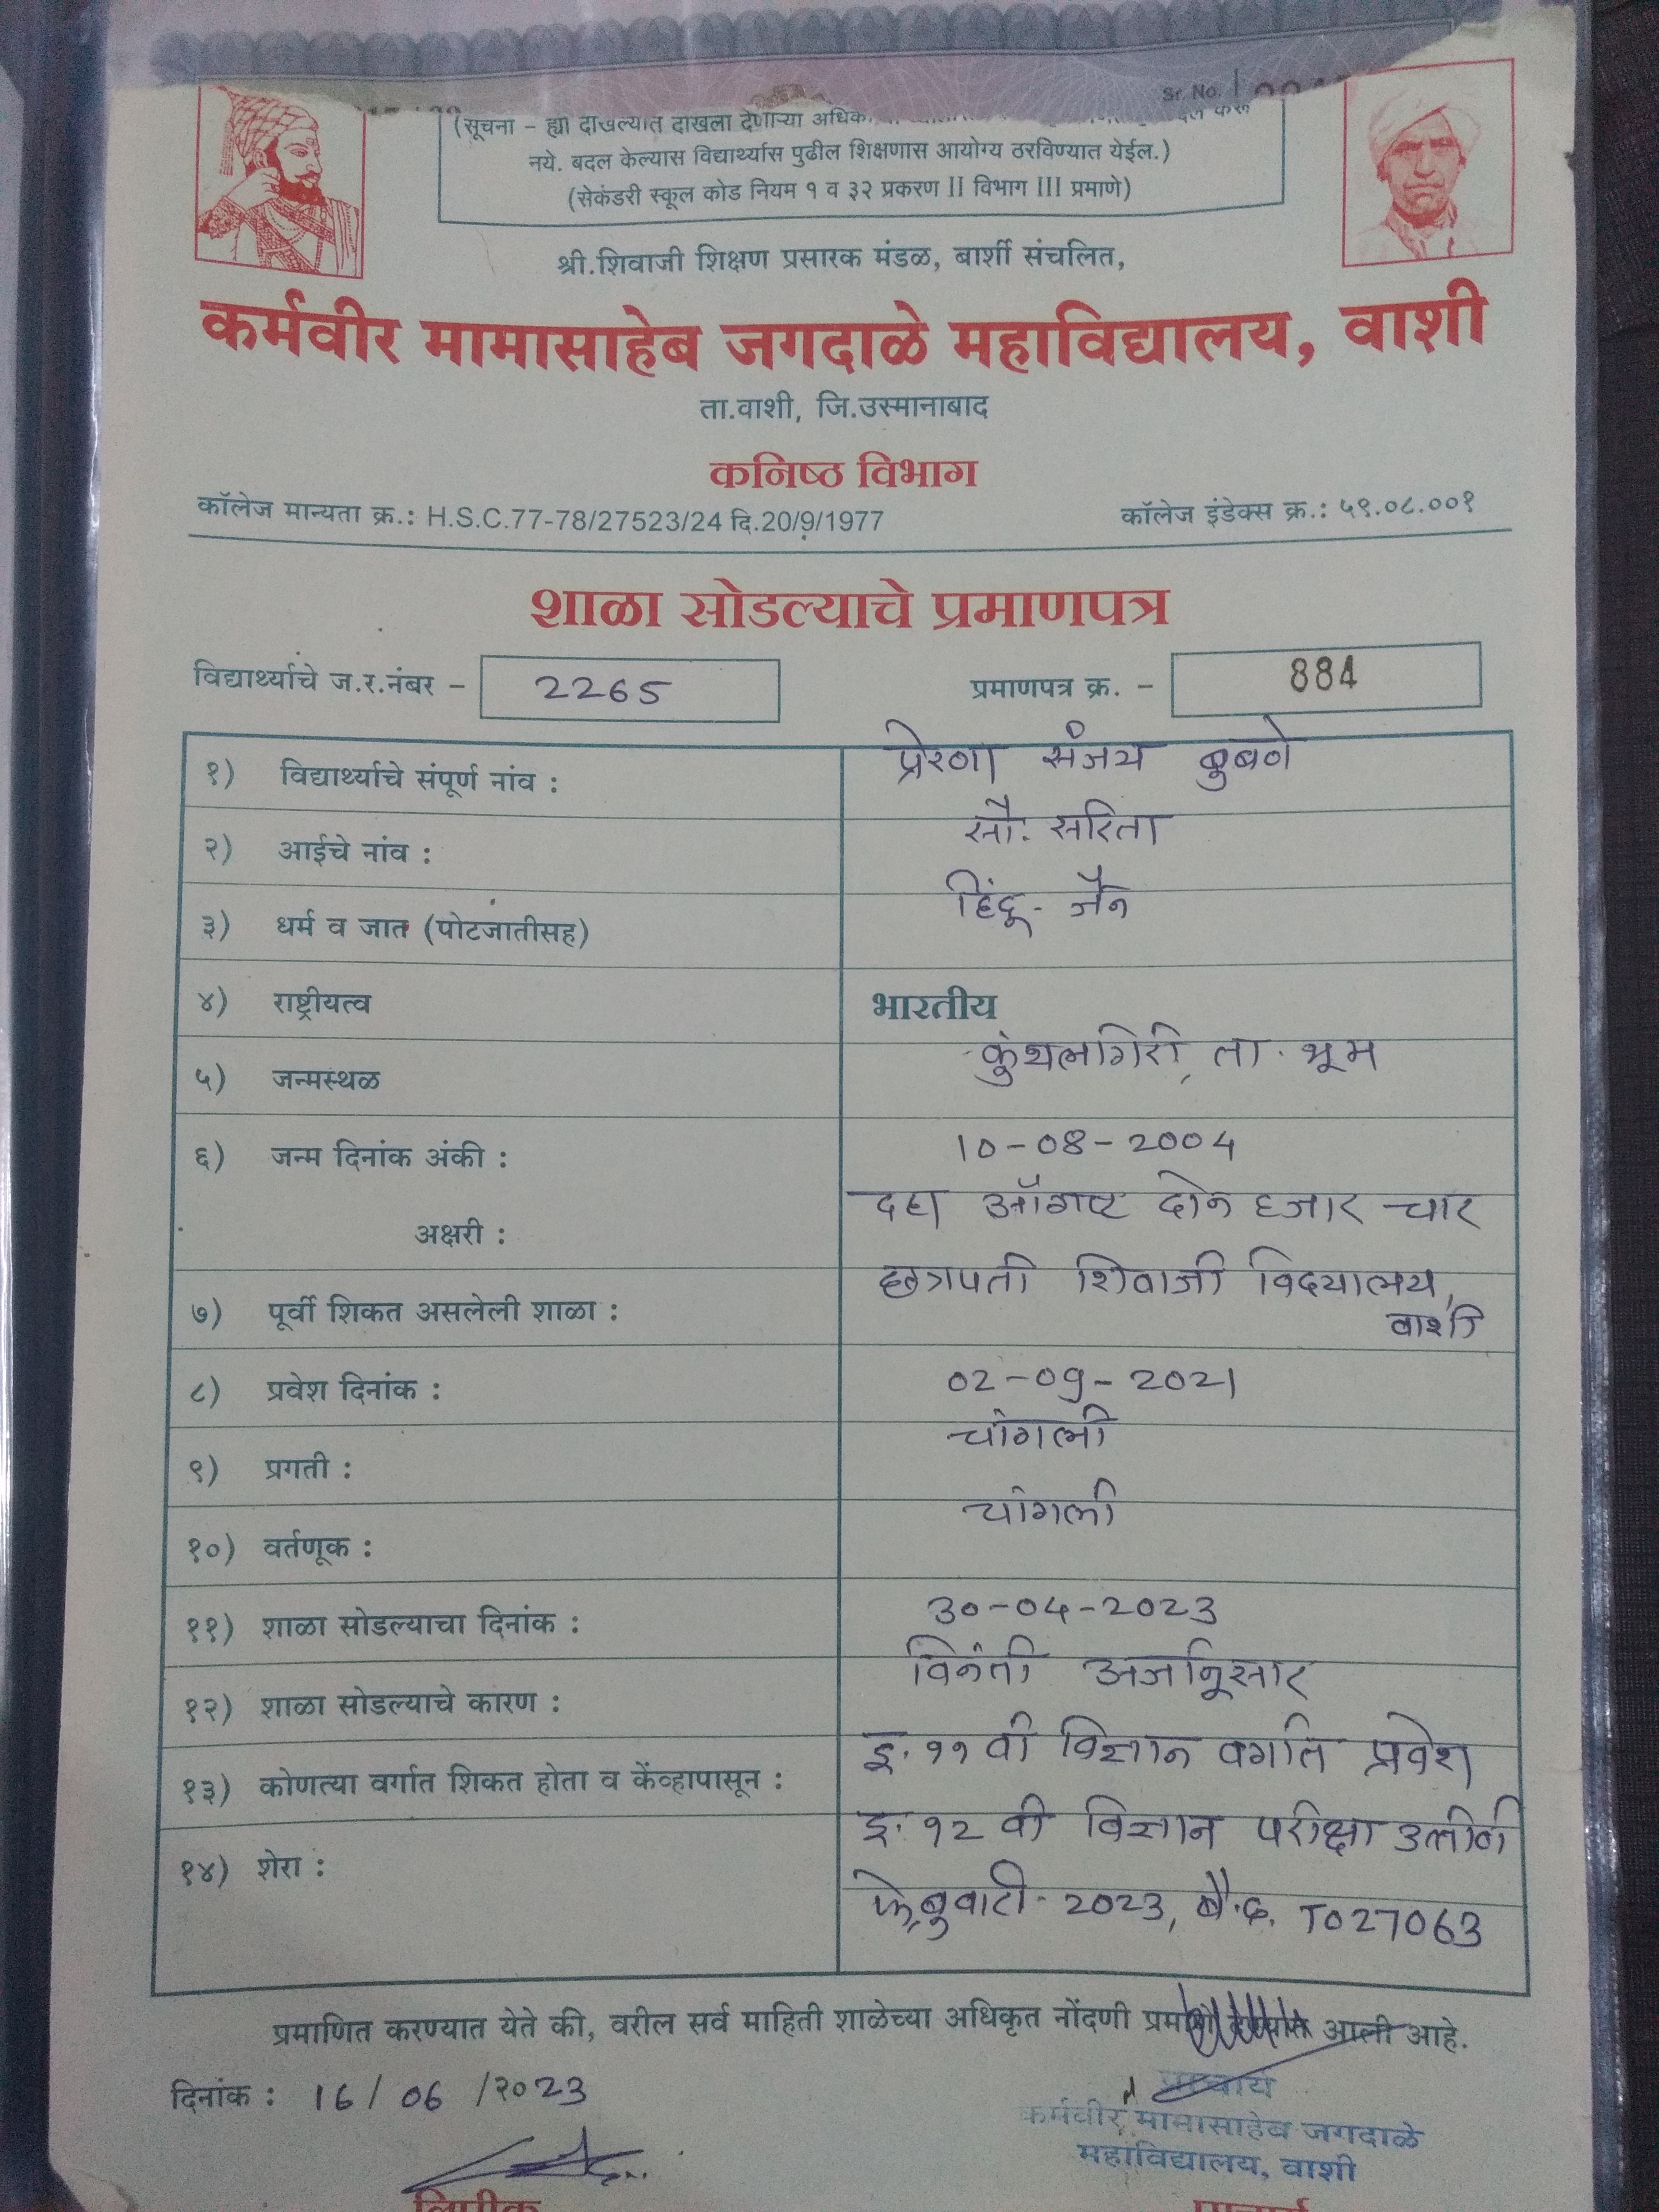 Sr. No.
(सूचना – ह्या दाखल्यात दाखला देणाऱ्या
नये. बदल केल्यास विद्यार्थ्यास पुढील शिक्षणास आयोग्य ठरविण्यात येईल.)
(सेकंडरी स्कूल कोड नियम १ व ३२ प्रकरण II विभाग III प्रमाणे)
श्री.शिवाजी शिक्षण प्रसारक मंडळ, बार्शी संचलित,
कर्मवीर मामासाहेब जगदाळे महाविद्यालय, वाशी
ता.वाशी, जि.उस्मानाबाद
कनिष्ठ विभाग
कॉलेज मान्यता क्र.: H.S.C.77-78/27523/24 दि.20/9/1977 कॉलेज इंडेक्स क्र.: ५९.०८.००१
शाळा सोडल्याचे प्रमाणपत्र
विद्यार्थ्याचे ज.र.नंबर – 2265 प्रमाणपत्र क्र. – 884
१) विद्यार्थ्याचे संपूर्ण नांव : प्रेरणा संजय बुबणे
२) आईचे नांव : सौ. सरिता
३) धर्म व जात (पोटजातीसह) हिंदू - जैन
४) राष्ट्रीयत्व भारतीय
५) जन्मस्थळ कुंथलगिरी, ता. भूम
६) जन्म दिनांक अंकी : 10-08-2004
अक्षरी : दहा ऑगष्ट दोन हजार चार
७) पूर्वी शिकत असलेली शाळा : छत्रपती शिवाजी विद्यालय,
वाशी
८) प्रवेश दिनांक : 02-09-2021
९) प्रगती : चांगली
१०) वर्तणूक : चांगली
११) शाळा सोडल्याचा दिनांक : 30-04-2023
१२) शाळा सोडल्याचे कारण : विनंती अर्जानुसार
१३) कोणत्या वर्गात शिकत होता व केंव्हापासून : इ. ११ वी विज्ञान वर्गात प्रवेश
१४) शेरा : इ. १२ वी विज्ञान परीक्षा उत्तीर्ण
फेब्रुवारी - 2023, बै.क्र. T027063
प्रमाणित करण्यात येते की, वरील सर्व माहिती शाळेच्या अधिकृत नोंदणी आली आहे.
दिनांक : 16/06/2023
प्राचार्य
कर्मवीर मामासाहेब जगदाळे
महाविद्यालय, वाशी
लिपीक प्राचार्य